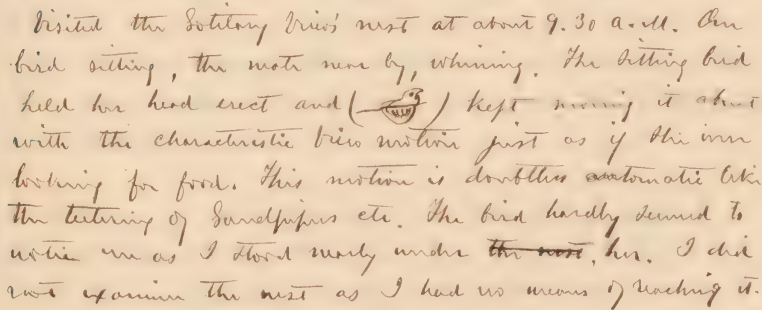 Visited the Solitary Vireo's nest at about 9.30 a.M. One
bird sitting, the mate near by, whining. The sitting bird
held her head erect and ( ) kept moving it about
with the characteristic Vireo motion just as if she were
looking for food. This motion is doubtless automatic like
the teetering of Sandpipers etc. The bird hardly seemed to
notice me as I stood nearly under the nest, her. I did
not examine the nest as I had no means of reaching it.